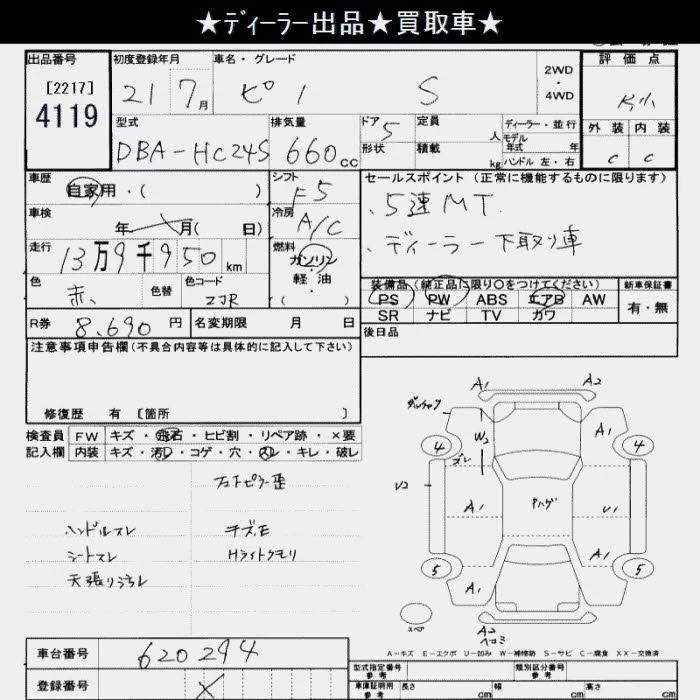 ★ディーラー出品★買取車★
出品番号 初度登録年月 車名・グレード 2WD・4WD 評価点
[2217]
4119
21 7月 ピノ S
外装 内装
C C
型式 排気量 ドア 定員 人 ディーラー・並行
DBA-HC24S 660cc 5
形状 積載 kg モデル年式 年
ハンドル 左・右
車歴 シフト セールスポイント (正常に機能するものに限ります)
自家用・( ) F5 ・5速MT
車検 冷房
年 月( 日) A/C ・ディーラー下取り車
走行 燃料
13万9千950km ガソリン・軽油・( )
色 色替 色コード 装備品(純正品に限り○をつけてください) 新車保証書
赤 ZJR PS PW ABS エアB AW 有・無
SR ナビ TV カワ
R券 8,690円 名変期限 月 日 後日品
注意事項申告欄(不具合内容等は具体的に記入して下さい)
修復歴 有 [箇所 ]
検査員 FW キズ・飛石・ヒビ割・リペア跡・×要
記入欄 内装 キズ・汚レ・コゲ・穴・スレ・キレ・破レ
ハンドルスレ キズモ
シートスレ Hライトクモリ
天張り汚レ
A1 A2
W2 A1
4 4
ズレ
A1 U1
A1
5 5
A1
スペア
A2
ヘコミ
A-キズ E-エクボ U-凹み W-補修跡 S-サビ C-腐食 XX-交換済
車台番号 620294
登録番号
型式指定番号 参考 類別区分番号 参考
車庫証明用 参考 長さ cm 幅 cm 高さ cm